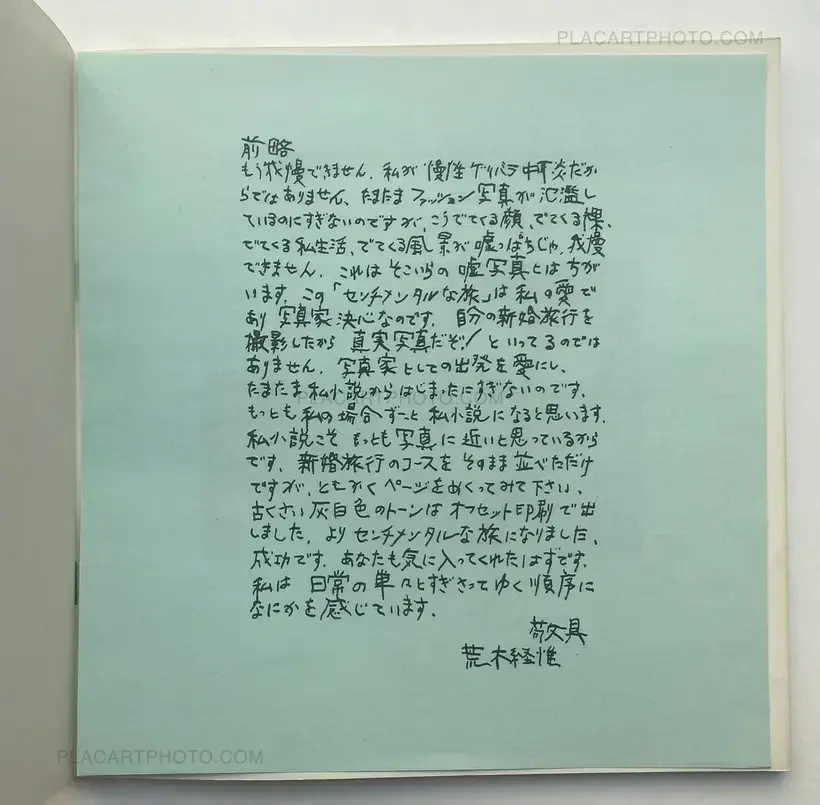 PLACARTPHOTO.COM
前略
もう我慢できません. 私が 慢性ゲリバラ中耳炎だか
らではありません、たまたま ファッション写真が氾濫し
ているのにすぎないのですが、こうでてくる顔、でてくる裸、
でてくる私生活、でてくる風景が嘘っぱちじゃ、我慢
できません. これはそこいらの嘘写真とはちが
います. この「センチメンタルな旅」は私の愛で
あり 写真家決心なのです. 自分の新婚旅行を
撮影したから 真実写真だぞ! といってるのでは
ありません. 写真家としての出発を愛にし、
たまたま私小説からはじまったにすぎないのです.
PLACARTPHOTO.COM
もっとも私の場合ずーっと私小説になると思います.
私小説こそ もっとも写真に近いと思っているから
です. 新婚旅行のコースをそのまま並べただけ
ですが、ともかくページをめくってみて下さい、
古くさい灰白色のトーンはオフセット印刷で出
しました. よりセンチメンタルな旅になりました、
成功です. あなたも気に入ってくれたはずです.
私は 日常の単々とすぎさってゆく順序に
なにかを感じています.
敬具
荒木経惟
PLACARTPHOTO.COM